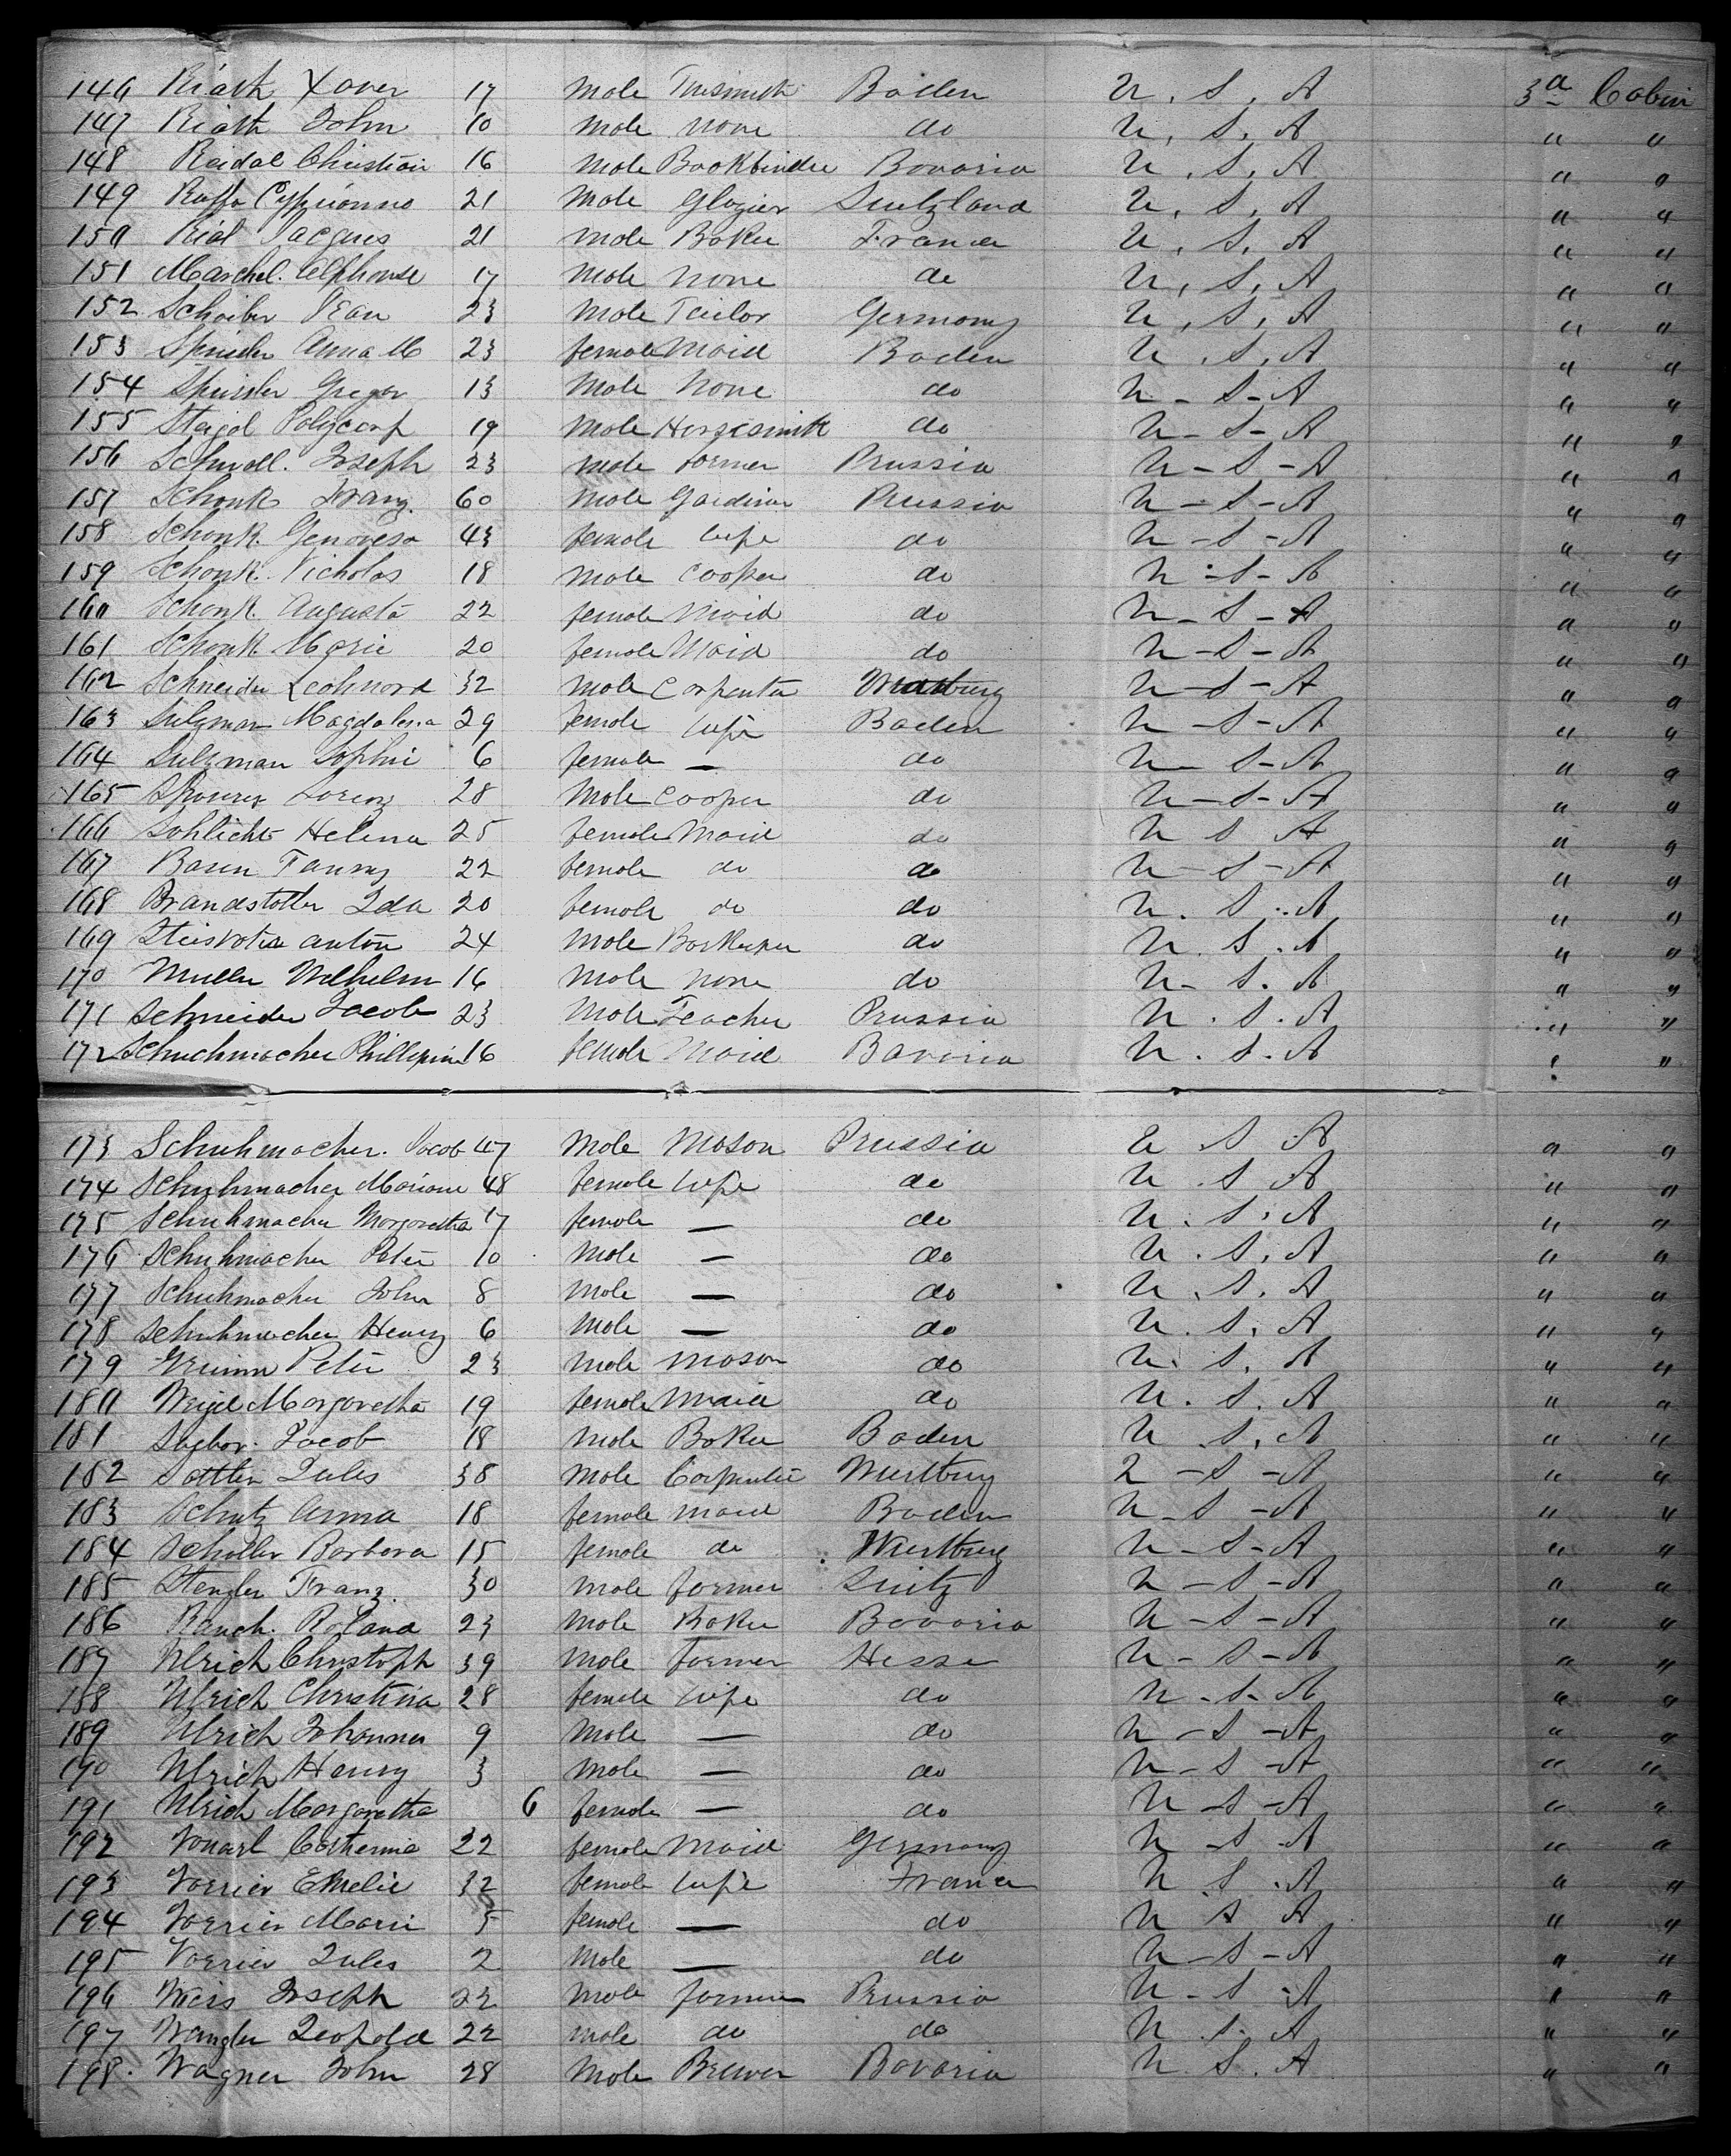 146 Riath Xaver 17 Male Tinsmith Baden U. S. A 3a Cabin
147 Riath John 10 Male None do U. S. A " "
148 Raidal Christian 16 Male Bookbinder Bavaria U. S. A " "
149 21 Male Glazier Switzland U. S. A " "
150 Rial Jacques 21 Male Baker France U. S. A " "
151 Marchal. Alphonse 17 Male None do U. S. A " "
152 Schaiber Jean 23 Male Tailor Germany U. S. A " "
153 Anna M 23 female Maid Baden U. S. A " "
154 Gregor 13 Male None do U - S - A " "
155 Staigel Polycarp 19 Male Horsesmith do U - S - A " "
156 Joseph 23 Male Farmer Prussia U - S - A " "
157 Schonk Franz. 60 Male Gardiner Prussia U - S - A " "
158 Schonk. Genovesa 43 female wife do U - S - A " "
159 Schonk. Nicholas 18 Male Cooper do U - S - A " "
160 Schonk. Augusta 22 female Maid do U - S - A " "
161 Schonk Marie 20 female Maid do U - S - A " "
162 Schneider Leohnard 32 Male Carpenter U - S - A " "
163 Sulzman Magdalena 29 female wife Baden U - S - A " "
164 Sulzman Sophie 6 female — do U - S - A " "
165 Lorenz 28 Male Cooper do U - S - A " "
166 Schlicht Helena 25 female Maid do U S A " "
167 Fanny 22 female do do U - S - A " "
168 Brandstatter Ida 20 female do do U. S. A " "
169 Anton 24 Male Barkeeper do U. S. A " "
170 Muller Wilhelm 16 Male None do U - S. A " "
171 Schneider Jacob 23 Male Teacher Prussia U. S. A " "
172 Schuhmacher Phillipine 16 female Maid Bavaria U. S. A "
173 Schuhmacher. Jacob 47 Male Mason Prussia U S A " "
174 Schuhmacher Mariane 48 female wife do U. S A " "
175 Schuhmacher Margaretha 17 female — do U. S. A " "
176 Schuhmacher Peter 10 Male — do U. S. A " "
177 Schuhmacher John 8 Male — do U. S. A " "
178 Schuhmacher Henry 6 Male — do U. S. A " "
179 Grimm Peter 23 Male Mason do U. S. A " "
180 Weigel Margaretha 19 female Maid do U. S. A " "
181 Jacob 18 Male Baker Baden U. S. A " "
182 Sattler Jules 38 Male Carpenter Wurtburg U - S - A " "
183 Schutz Anna 18 female Maid Baden U - S - A " "
184 Scholler Barbara 15 female do Wurtburg U - S - A " "
185 Stengler Franz. 30 Male Farmer Switz U - S - A " "
186 Rauch. Roland 23 Male Baker Bavaria U - S - A " "
187 Ulrich Christoph 39 Male Farmer Hesse U - S - A " "
188 Ulrich Christina 28 female wife do U - S - A " "
189 Ulrich Johannes 9 Male — do U - S - A " "
190 Ulrich Henry 3 Male — do U - S - A " "
191 Ulrich Margaretha 6 female — do U - S - A " "
192 Catherina 22 female Maid Germany U - S - A " "
193 Vorrier Emelie 32 female wife France U. S. A " "
194 Vorrier Marie 5 female — do U S A " "
195 Vorrier Jules 2 Male — do U - S - A " "
196 Weis Joseph 22 Male farmer Prussia U - S - A " "
197 Wangler Leopold 22 male do do U. S. A " "
198. Wagner John 28 Male Brewer Bavaria U. S. A " "